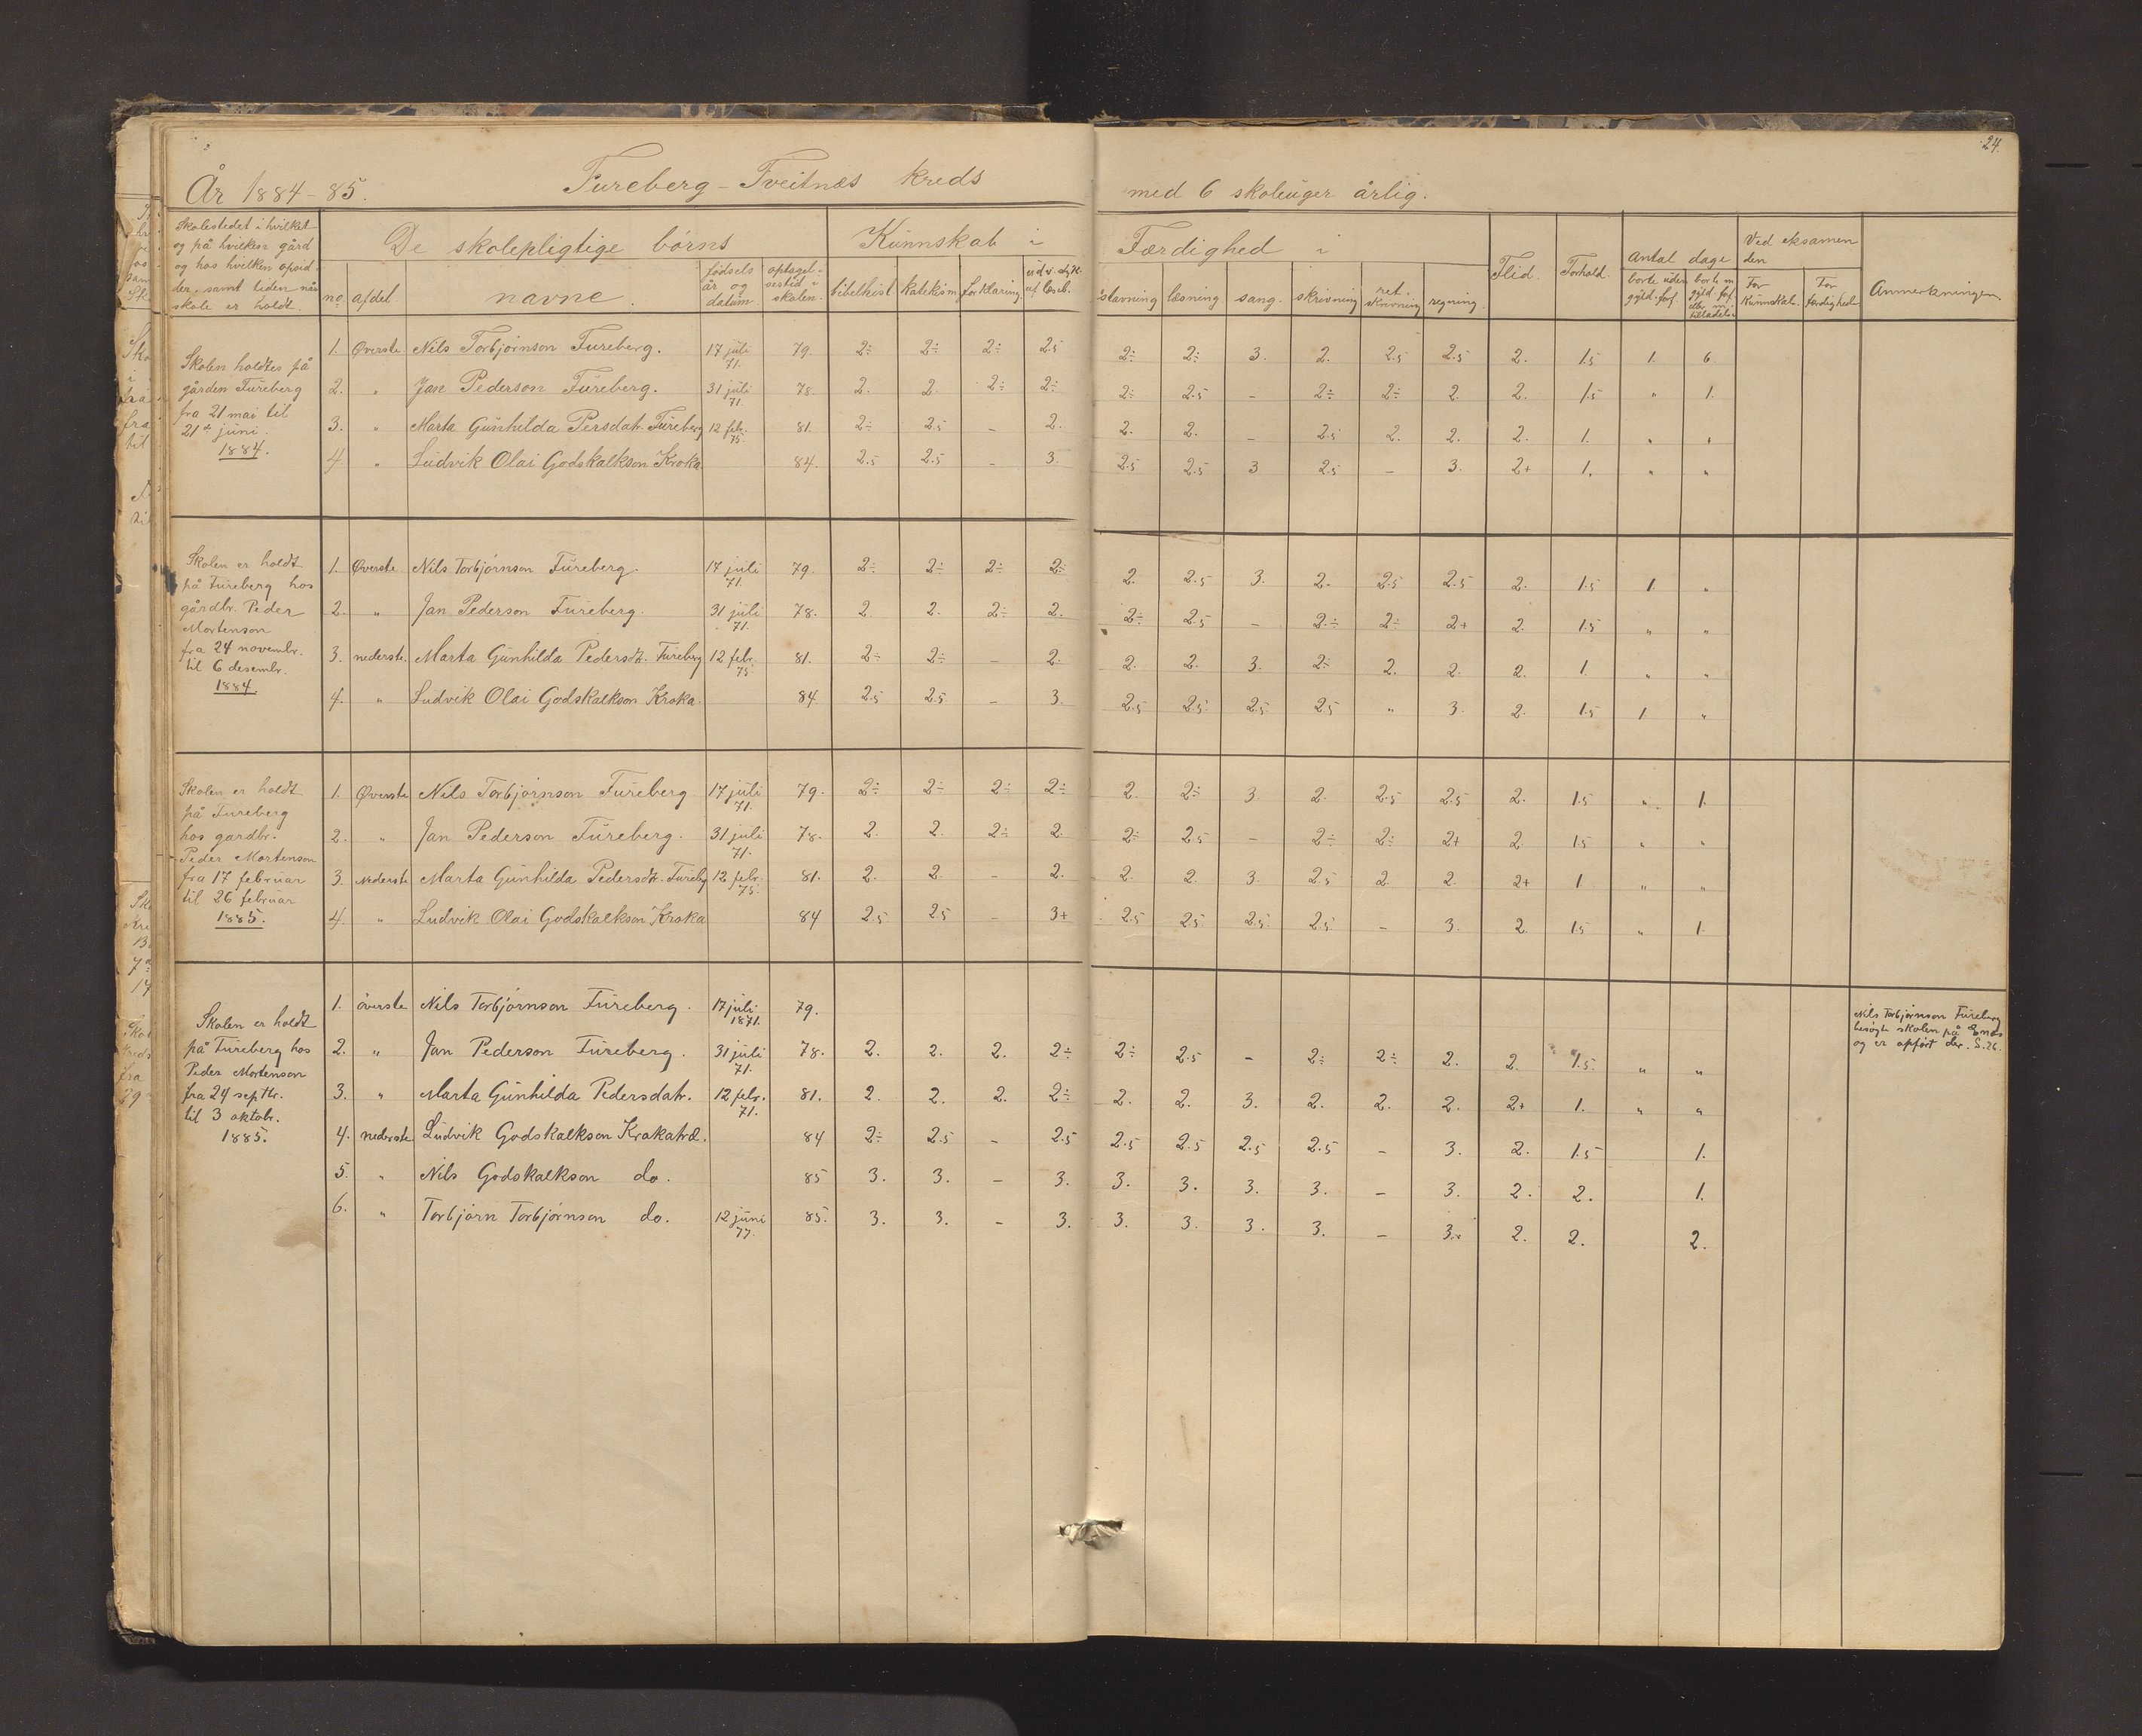 24.
År 1884-85. Fureberg-Tveitnæs kreds med 6 skoleuger årlig.
Skolestedet i hvilket
og på hvilken gård
og hos hvilken opsid
der, samt tiden når
skole er holdt.
De skolepligtige børns
no. afdel. navne. fødsels år og datum. optagelsestid i skolen.
Kunnskab i
bibelhist. katekism. forklaring. udv. styk. af læseb.
Færdighed i
stavning læsning sang. skrivning ret. skrivning regning.
Flid. Forhold.
Antal dage
borte uden gyld. forf. borte m gyld. forf. eller m. tilladelse
Ved eksamen den
For kunnskab. For færdighed.
Anmerkninger
Skolen holdtes på
gården Fureberg
fra 21 mai til
21de juni.
1884.
1. Øverste Nils Torbjørnson Fureberg. 17 juli 71. 79. 2÷ 2÷ 2÷ 2.5 2÷ 2÷ 3. 2. 2.5 2.5 2. 1.5 1. 6.
2. " Jan Pederson Fureberg. 31 juli 71. 78. 2. 2. 2÷ 2÷ 2÷ 2.5 - 2÷ 2÷ 2. 2. 1.5 " 1.
3. " Marta Gunhilda Persdatr. Fureberg 12 febr. 75. 81. 2÷ 2.5 - 2. 2. 2. - 2.5 2. 2. 2. 1. " "
4. " Ludvik Olai Godskalkson Kroka 84. 2.5 2.5 - 3. 2.5 2.5 3 2.5 - 3. 2+ 1. " "
Skolen er holdt
på Fureberg hos
gårdbr. Peder
Mortenson
fra 24 novembr.
til 6 desembr.
1884.
1. Øverste Nils Torbjørnson Fureberg. 17 juli 71. 79. 2÷ 2÷ 2÷ 2÷ 2. 2.5 3. 2. 2.5 2.5 2. 1.5 1. "
2. " Jan Pederson Fureberg. 31 juli 71. 78. 2. 2. 2÷ 2. 2÷ 2.5 - 2÷ 2÷ 2+ 2. 1.5 " "
3. nederste. Marta Gunhilda Pedersdtr. Fureberg 12 febr. 75. 81. 2÷ 2÷ - 2. 2. 2. 3. 2÷ 2. 2. 2. 1. " "
4. " Ludvik Olai Godskalkson Kroka. 84 2.5 2.5 - 3. 2.5 2.5 2.5 2.5 " 3. 2. 1.5 1. "
Skolen er holdt
på Fureberg
hos gardbr.
Peder Mortenson
fra 17 februar
til 26 februar
1885.
1. Øverste Nils Torbjørnson Fureberg 17 juli 71. 79. 2÷ 2÷ 2÷ 2÷ 2. 2÷ 3 2. 2.5 2.5 2. 1.5 " 1.
2. " Jan Pederson Fureberg. 31 juli 71. 78. 2. 2. 2÷ 2. 2÷ 2.5 - 2÷ 2÷ 2+ 2. 1.5 " "
3. Nederste Marta Gunhilda Pedersdtr. Fureberg 12 febr. 75. 81. 2. 2. - 2. 2. 2. 3. 2.5 2. 2. 2+ 1 " "
4. " Ludvik Olai Godskalkson Kroka 84 2.5 2.5 - 3+ 2.5 2.5 2.5 2.5 - 3. 2. 1.5 " 1.
Skolen er holdt
på Fureberg hos
Peder Mortenson
fra 24 septbr.
til 3 oktobr.
1885.
1. øverste Nils Torbjørnson Fureberg. 17 juli 1871. 79.
Nils Torbjørnson Fureberg
besøgte skolen på Enæs
og er opført der. S. 26.
2. " Jan Pederson Fureberg. 31 juli 71. 78. 2. 2. 2. 2÷ 2÷ 2.5 - 2÷ 2÷ 2. 2. 1.5 " "
3. " Marta Gunhilda Pedersdatr. 12 febr. 71. 81. 2. 2. 2. 2÷ 2. 2. 3. 2. 2. 2. 2+ 1. " "
4. nederste Ludvik Godskalkson Krokatræ. 84 2÷ 2.5 - 2.5 2.5 2.5 2.5 2.5 - 3. 2. 1.5 1.
5. " Nils Godskalkson do. 85 3. 3. - 3. 3. 3. 3. 3. - 3. 2. 2. 1.
6. " Torbjørn Torbjørnson do. 12 juni 77. 85. 3. 3. - 3. 3. 3. 3. 3. - 3. 2. 2. 2.